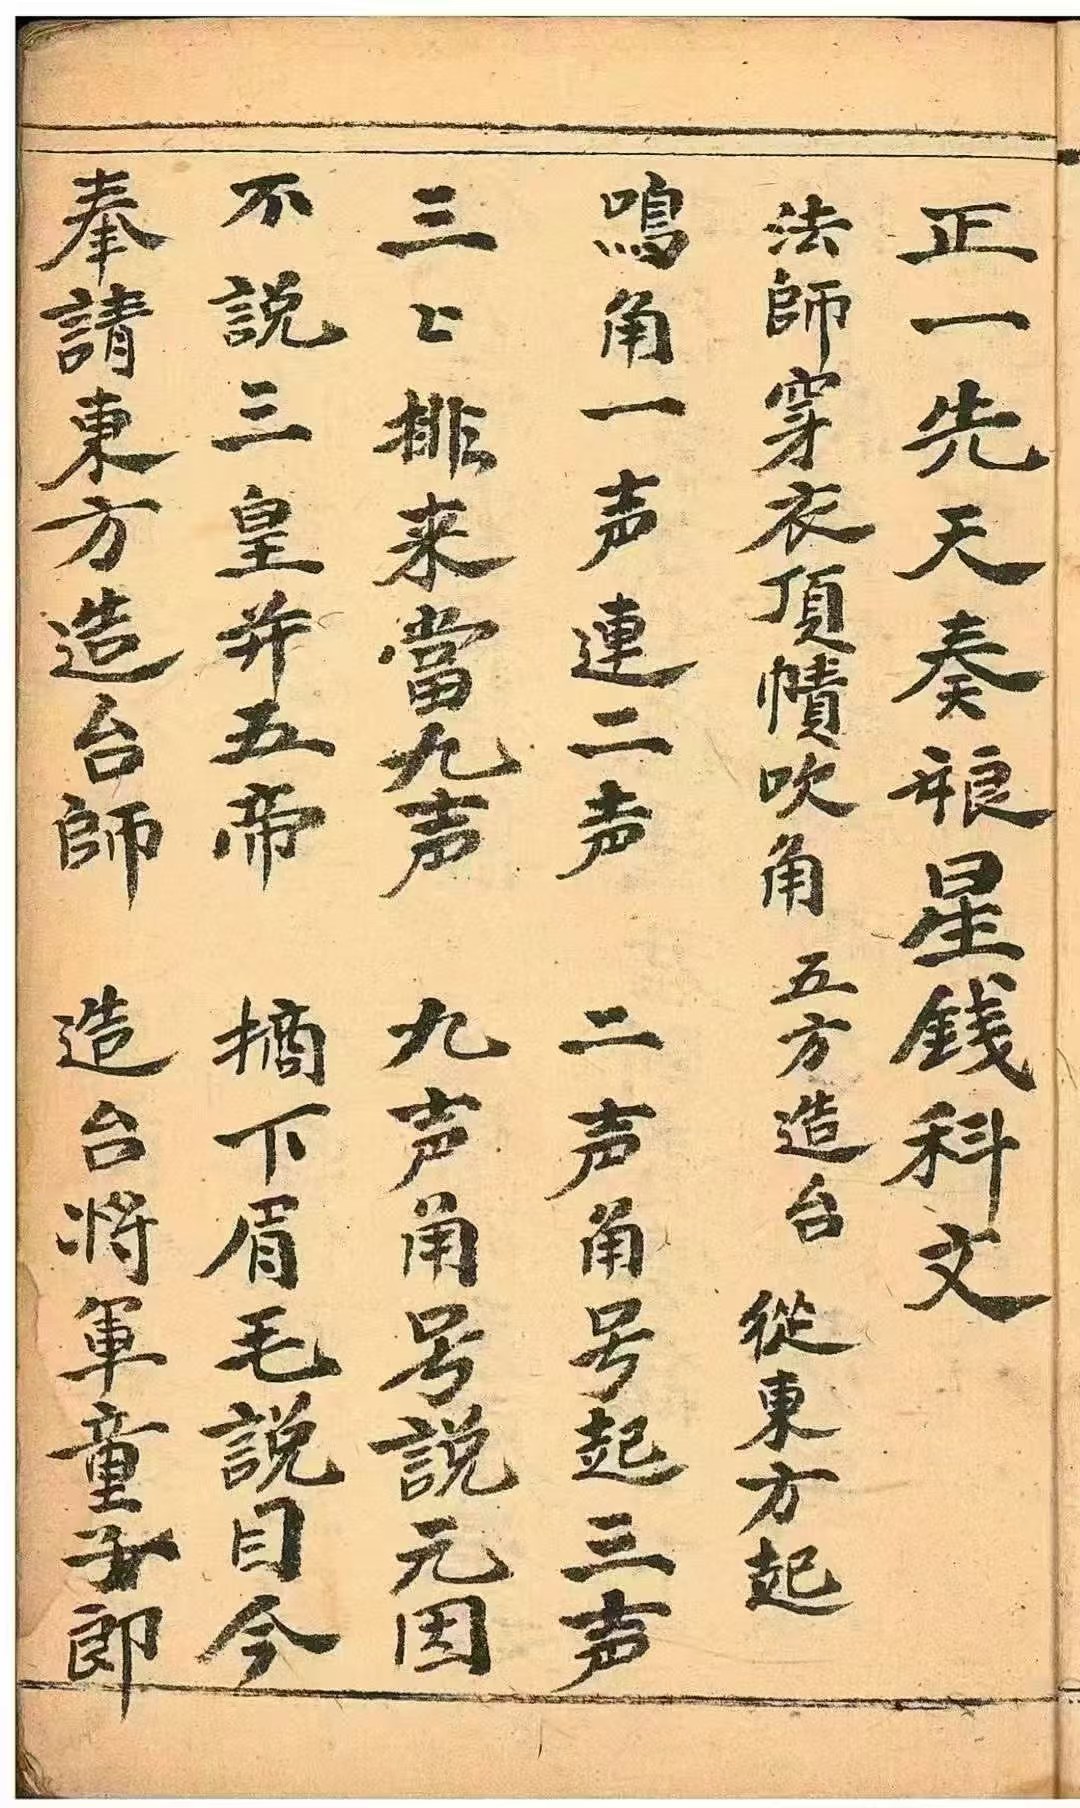 正一先天奏星錢科文
法師穿衣頂幘吹角 五方造台 從東方起
鳴角一声連二声 二声角号起三声
三〻排来當九声 九声角号說元因
不說三皇并五帝 摘下眉毛說目今
奉請東方造台師 造台將軍童子郎